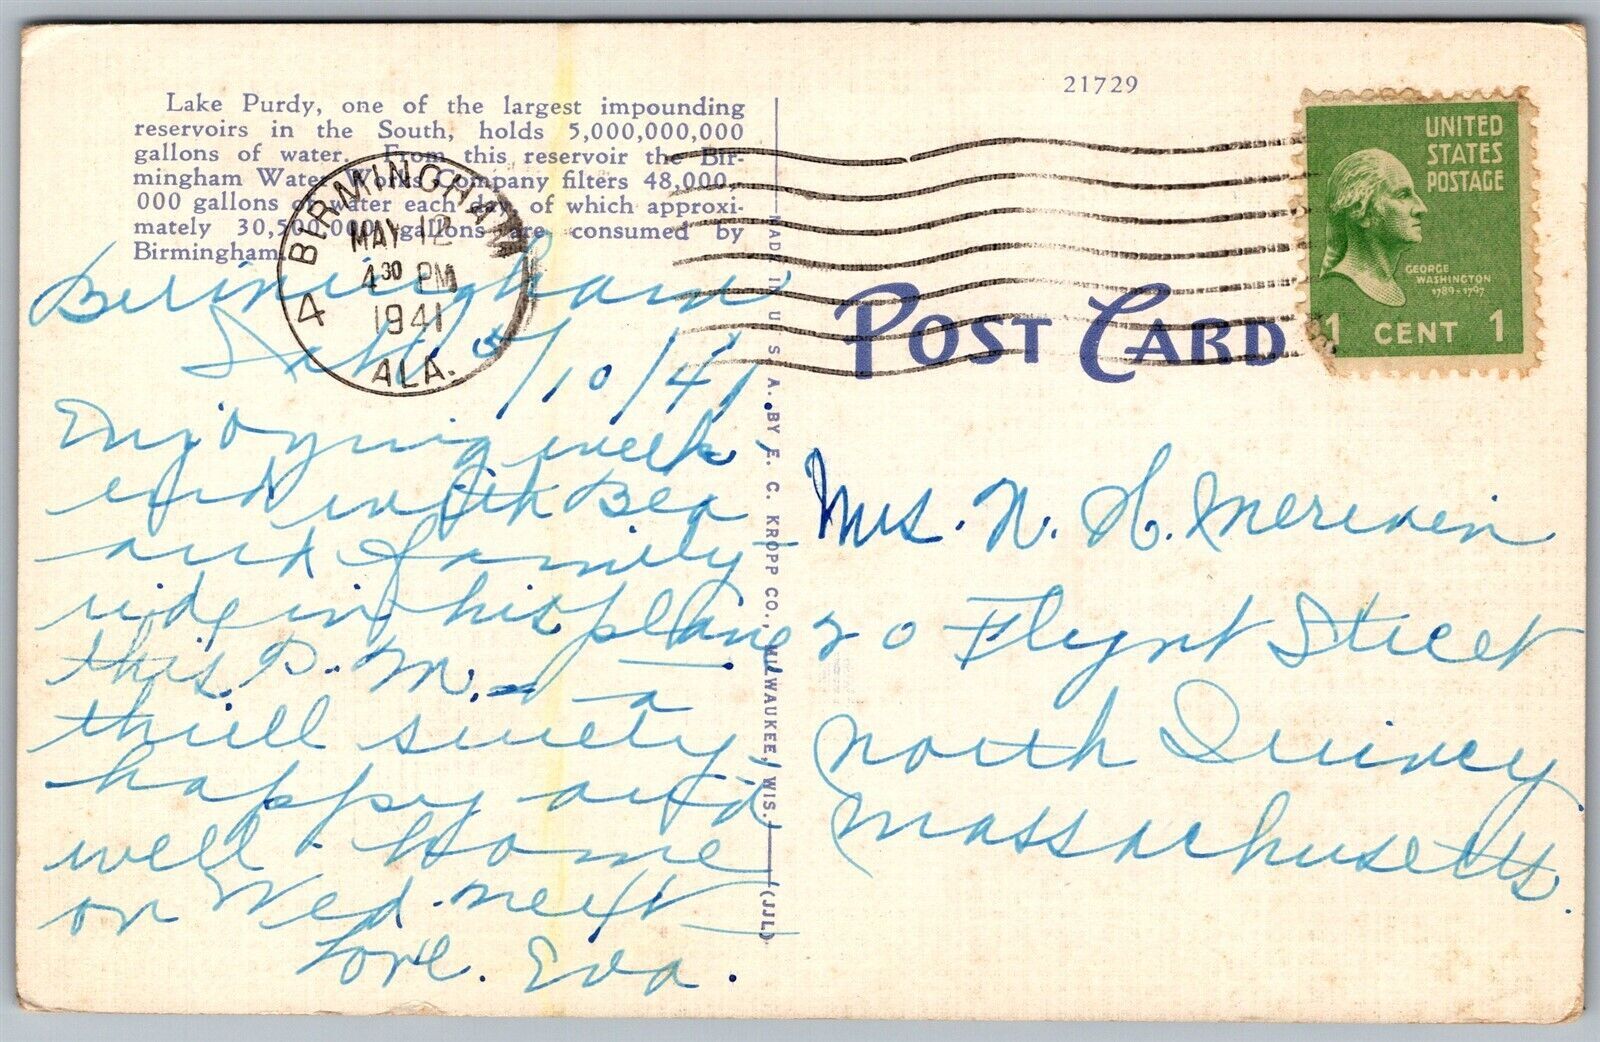 21729
Lake Purdy, one of the largest impounding
reservoirs in the South, holds 5,000,000,000
gallons of water. From this reservoir the Bir-
mingham Water Works Company filters 48,000,
000 gallons of water each day, of which approxi-
mately 30,500,000 gallons are consumed by
Birmingham.
4 BIRMINGHAM
MAY 12
4 30 PM
1941
ALA.
UNITED
STATES
POSTAGE
GEORGE
WASHINGTON
1789-1797
1 CENT 1
POST CARD
MADE IN U. S. A. BY E. C. KROPP CO., MILWAUKEE, WIS.
(JJL)
Birmingham
Sat. 5/10/41.
Enjoying week
end with Bea
and family -
ride in his plane
this P.M. - a
thrill surely,
happy and
well. Home
on Wed. next
Love. Eva.
Mrs. N. H. Meriven
20 Flynt Street
North Quincy
Massachusetts.